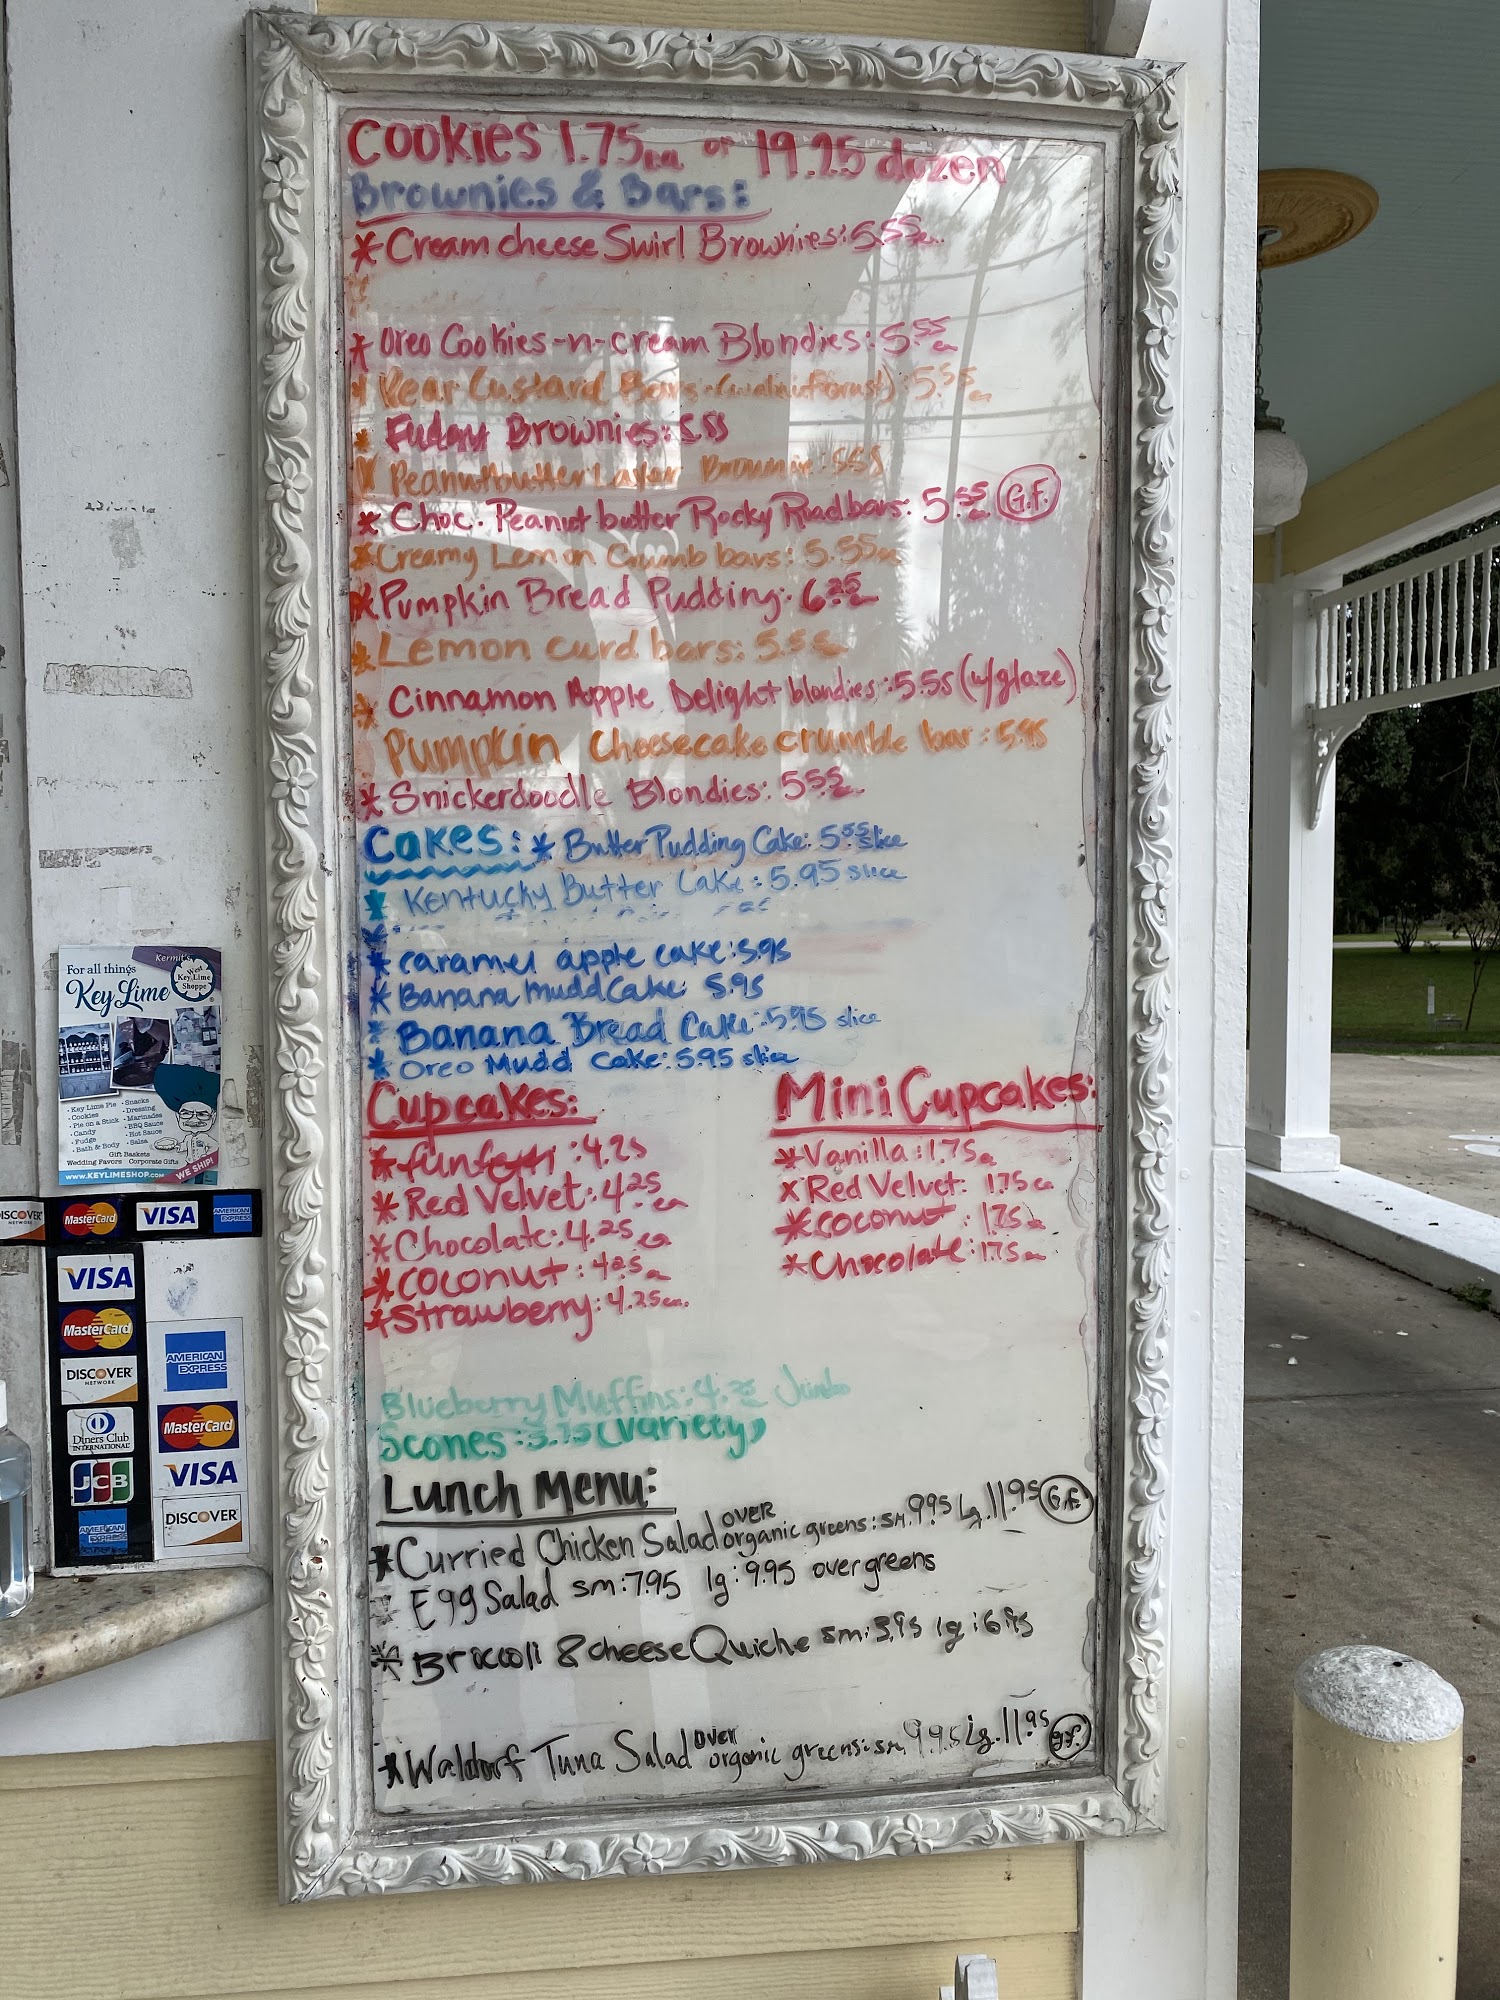 Cookies 1.75 ea or 19.25 dozen
Brownies & Bars:
* Cream cheese Swirl Brownies: 5.55 ea.
* Oreo Cookies-n-cream Blondies: 5.55 ea
* Pear Custard Bars (walnut crust): 5.55 ea
* Fudgy Brownies: 5.55
* Peanutbutter Layer Brownie: 5.55
* Choc. Peanut butter Rocky Road bars: 5.55 ea G.F.
* Creamy Lemon Crumb bars: 5.55 ea
* Pumpkin Bread Pudding: 6.25 ea
* Lemon curd bars: 5.55 ea
* Cinnamon Apple Delight blondies: 5.55 (w/glaze)
Pumpkin Cheesecake crumble bar: 5.95
* Snickerdoodle Blondies: 5.55 ea
Cakes: * Butter Pudding Cake: 5.55 slice
* Kentucky Butter Cake: 5.95 slice
* caramel apple cake: 5.95
* Banana mudd Cake: 5.95
* Banana Bread Cake: 5.95 slice
* Oreo Mudd Cake: 5.95 slice
Cupcakes:
* funfetti: 4.25
* Red Velvet: 4.25 ea
* Chocolate: 4.25 ea
* coconut: 4.25 ea
* Strawberry: 4.25 ea.
Mini Cupcakes:
* Vanilla: 1.75 ea
x Red Velvet: 1.75 ea
* coconut: 1.75 ea
* Chocolate: 1.75 ea
Blueberry Muffins: 4.25 Jumbo
Scones: 3.75 (variety)
Lunch Menu:
* Curried Chicken Salad over organic greens: sm. 9.95 Lg. 11.95 G.F.
Egg Salad sm: 7.95 lg: 9.95 over greens
* Broccoli & cheese Quiche sm: 3.95 lg: 6.95
* Waldorf Tuna Salad over organic greens: sm. 9.95 Lg. 11.95 g.f.
For all things
Key Lime
Kermit's
Key West
Key Lime
Shoppe
· Key Lime Pie
· Cookies
· Pie on a Stick
· Candy
· Fudge
· Bath & Body
· Snacks
· Dressing
· Marinades
· BBQ Sauce
· Hot Sauce
· Salsa
Gift Baskets
Wedding Favors Corporate Gifts
www.KEYLIMESHOP.com
WE SHIP!
DISCOVER NETWORK
MasterCard
VISA
AMERICAN EXPRESS
VISA
MasterCard
DISCOVER NETWORK
Diners Club INTERNATIONAL
JCB
AMERICAN EXPRESS
AMERICAN EXPRESS
MasterCard
VISA
DISCOVER